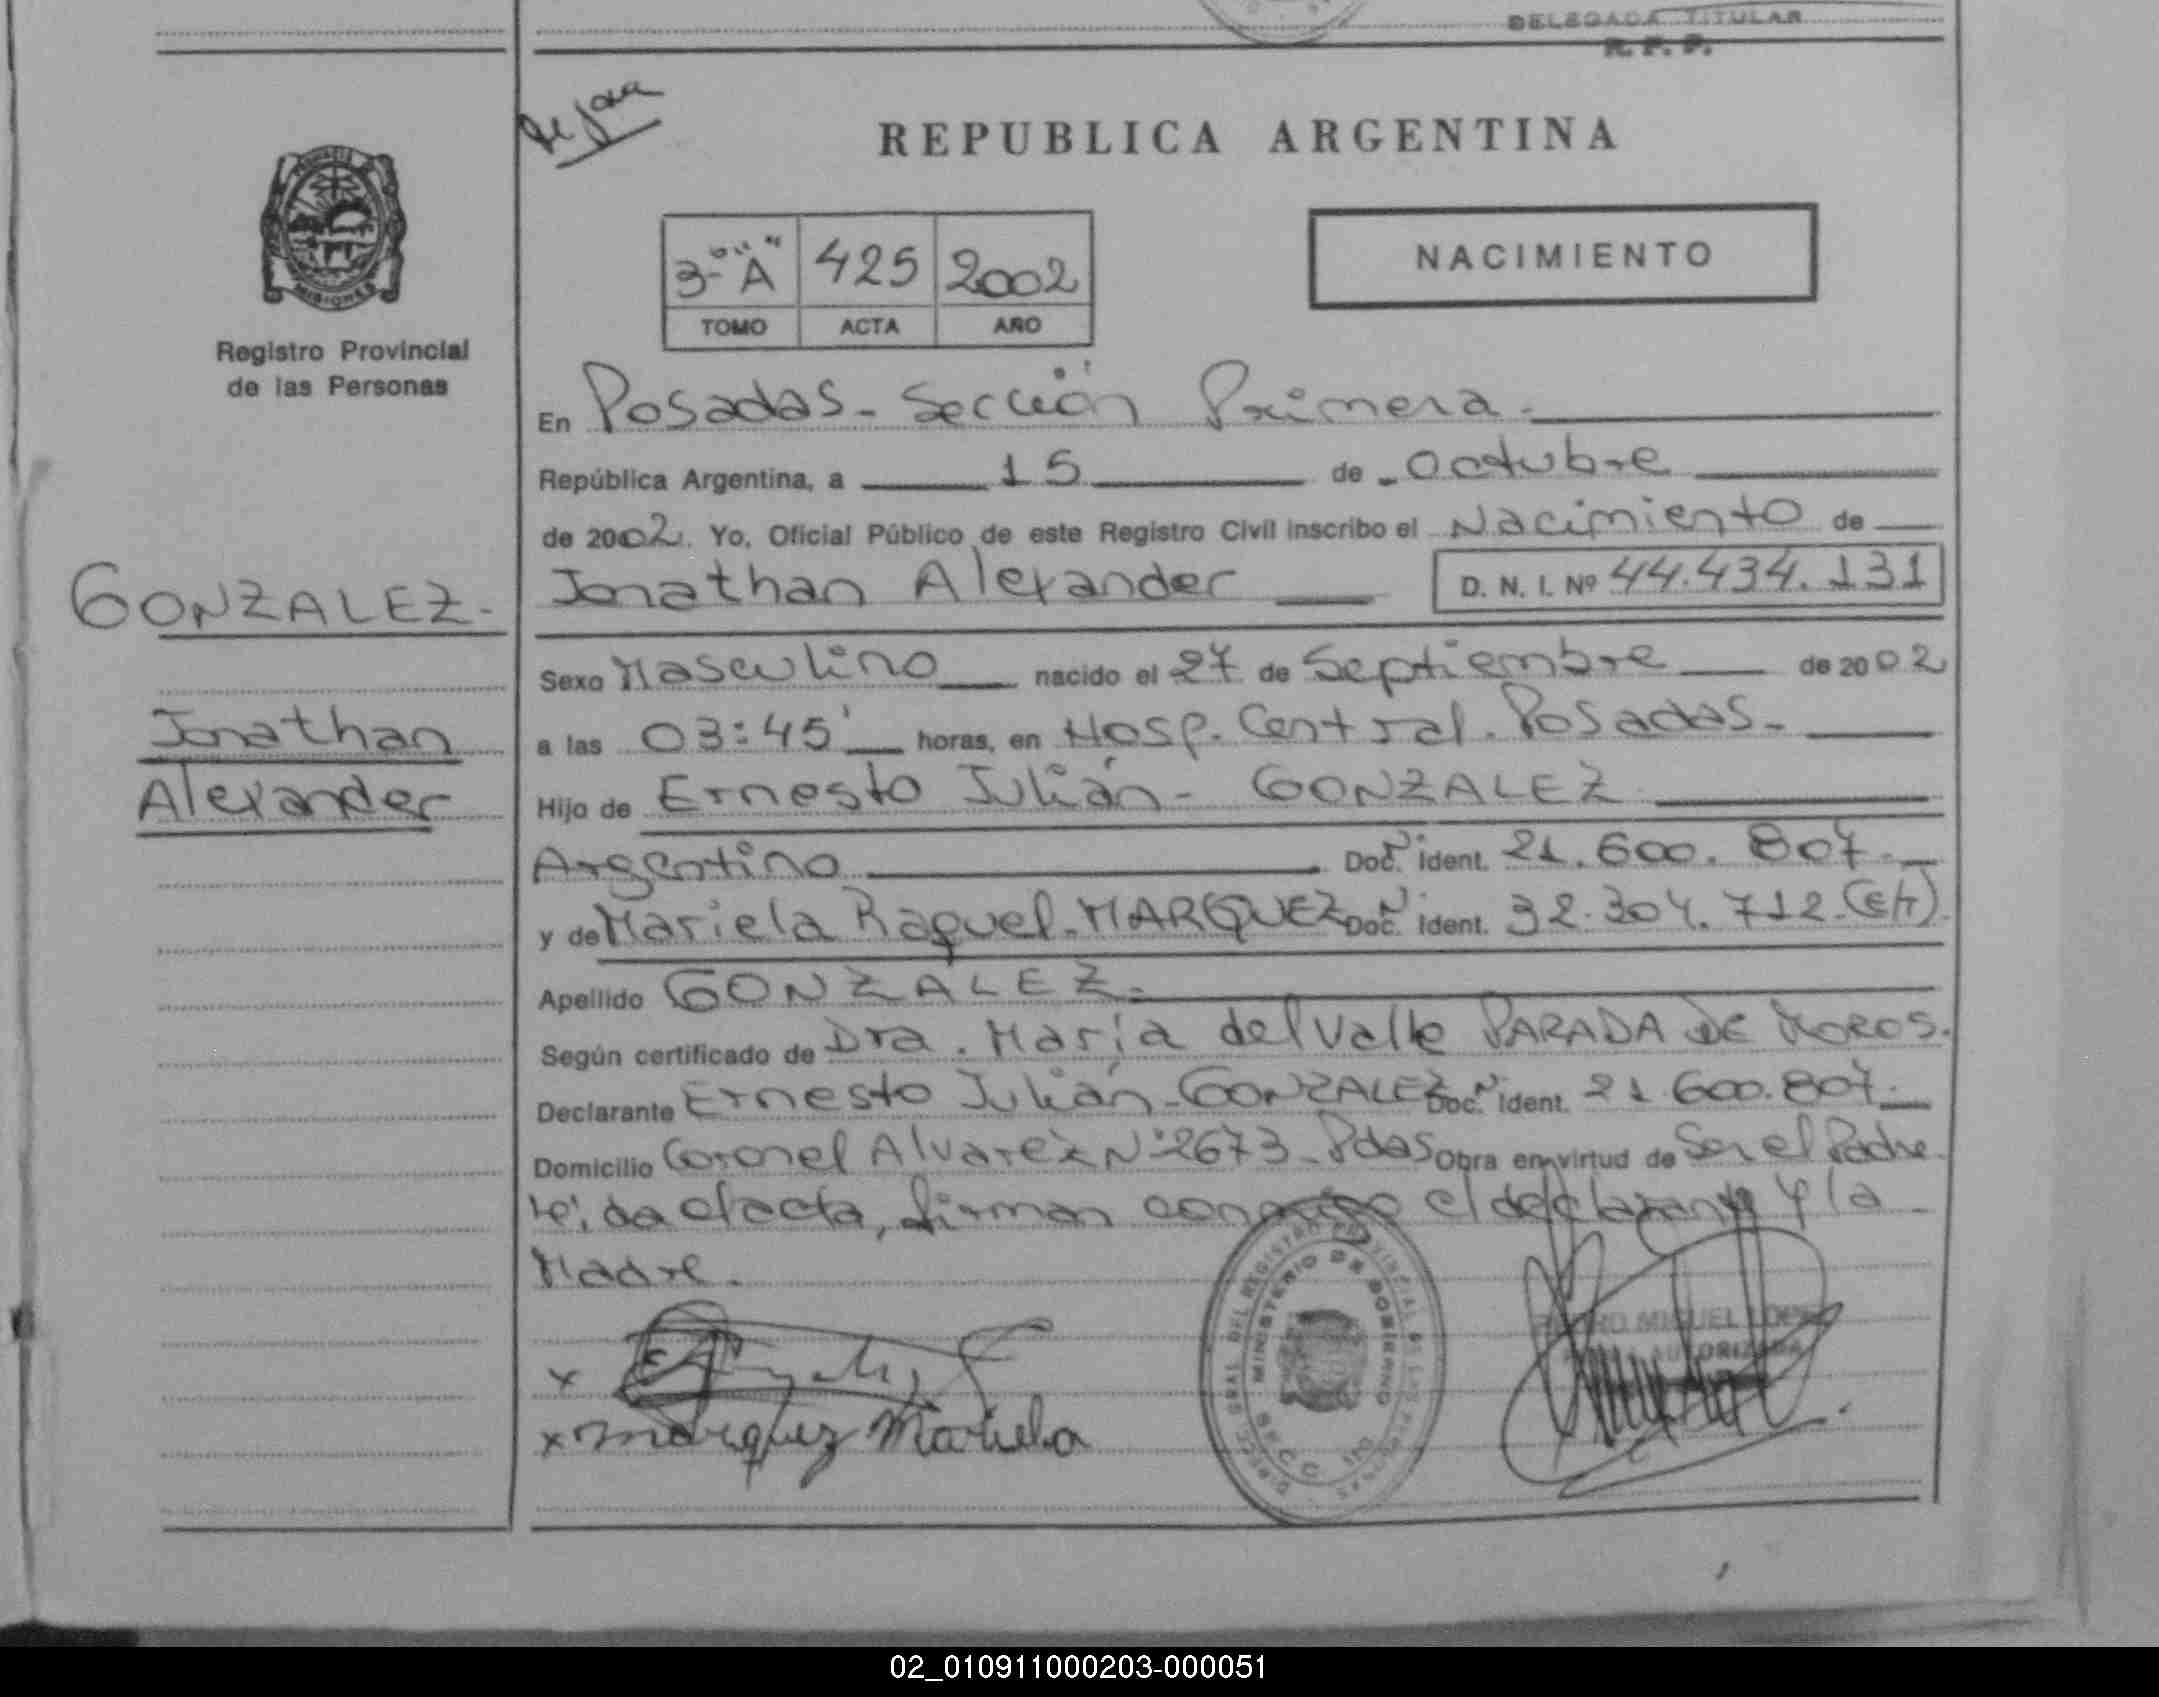 DELEGADA TITULAR
R. P. P.
REPUBLICA ARGENTINA
3º "A" 425 2002
TOMO ACTA AÑO
NACIMIENTO
MISIONES
Registro Provincial
de las Personas
En Posadas - Sección Primera.
República Argentina, a 15 de Octubre
de 2002. Yo, Oficial Público de este Registro Civil inscribo el Nacimiento de
GONZALEZ.
Jonathan Alexander D. N. I. Nº 44.434.131
Sexo Masculino nacido el 27 de Septiembre de 2002
Jonathan
a las 03:45' horas, en Hosp. Central. Posadas-
Alexander
Hijo de Ernesto Julián - GONZALEZ
Argentino Doc. Ident. 21.600.807.
y de Mariela Raquel - MARQUEZ Doc. Ident. 32.304.712.
Apellido GONZALEZ.
Según certificado de Dra. María del Valle PARADA DE MOROS.
Declarante Ernesto Julián - GONZALEZ Doc. Ident. 21.600.807.
Domicilio Coronel Alvarez Nº 2673 - Pdas Obra en virtud de Ser el Padre
leída el acta, firman conmigo el declarante y la
Madre.
x
x Marquez Mariela
MINISTERIO DE GOBIERNO
MIGUEL LOPEZ
AUTORIZADA
02_010911000203-000051